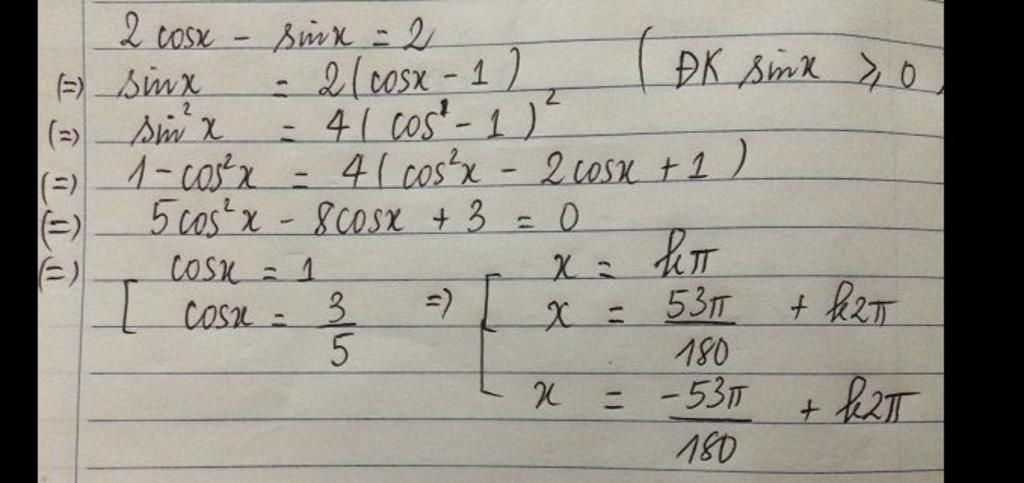 2 cosx - sinx = 2
(=) sinx = 2(cosx - 1) (ĐK sinx ⩾ 0)
(=) sin²x = 4(cos¹ - 1)²
(=) 1 - cos²x = 4(cos²x - 2cosx + 1)
(=) 5cos²x - 8cosx + 3 = 0
(=) [ cosx = 1 x = kπ
cosx = 3/5 =) [ x = 53π/180 + k2π
x = -53π/180 + k2π